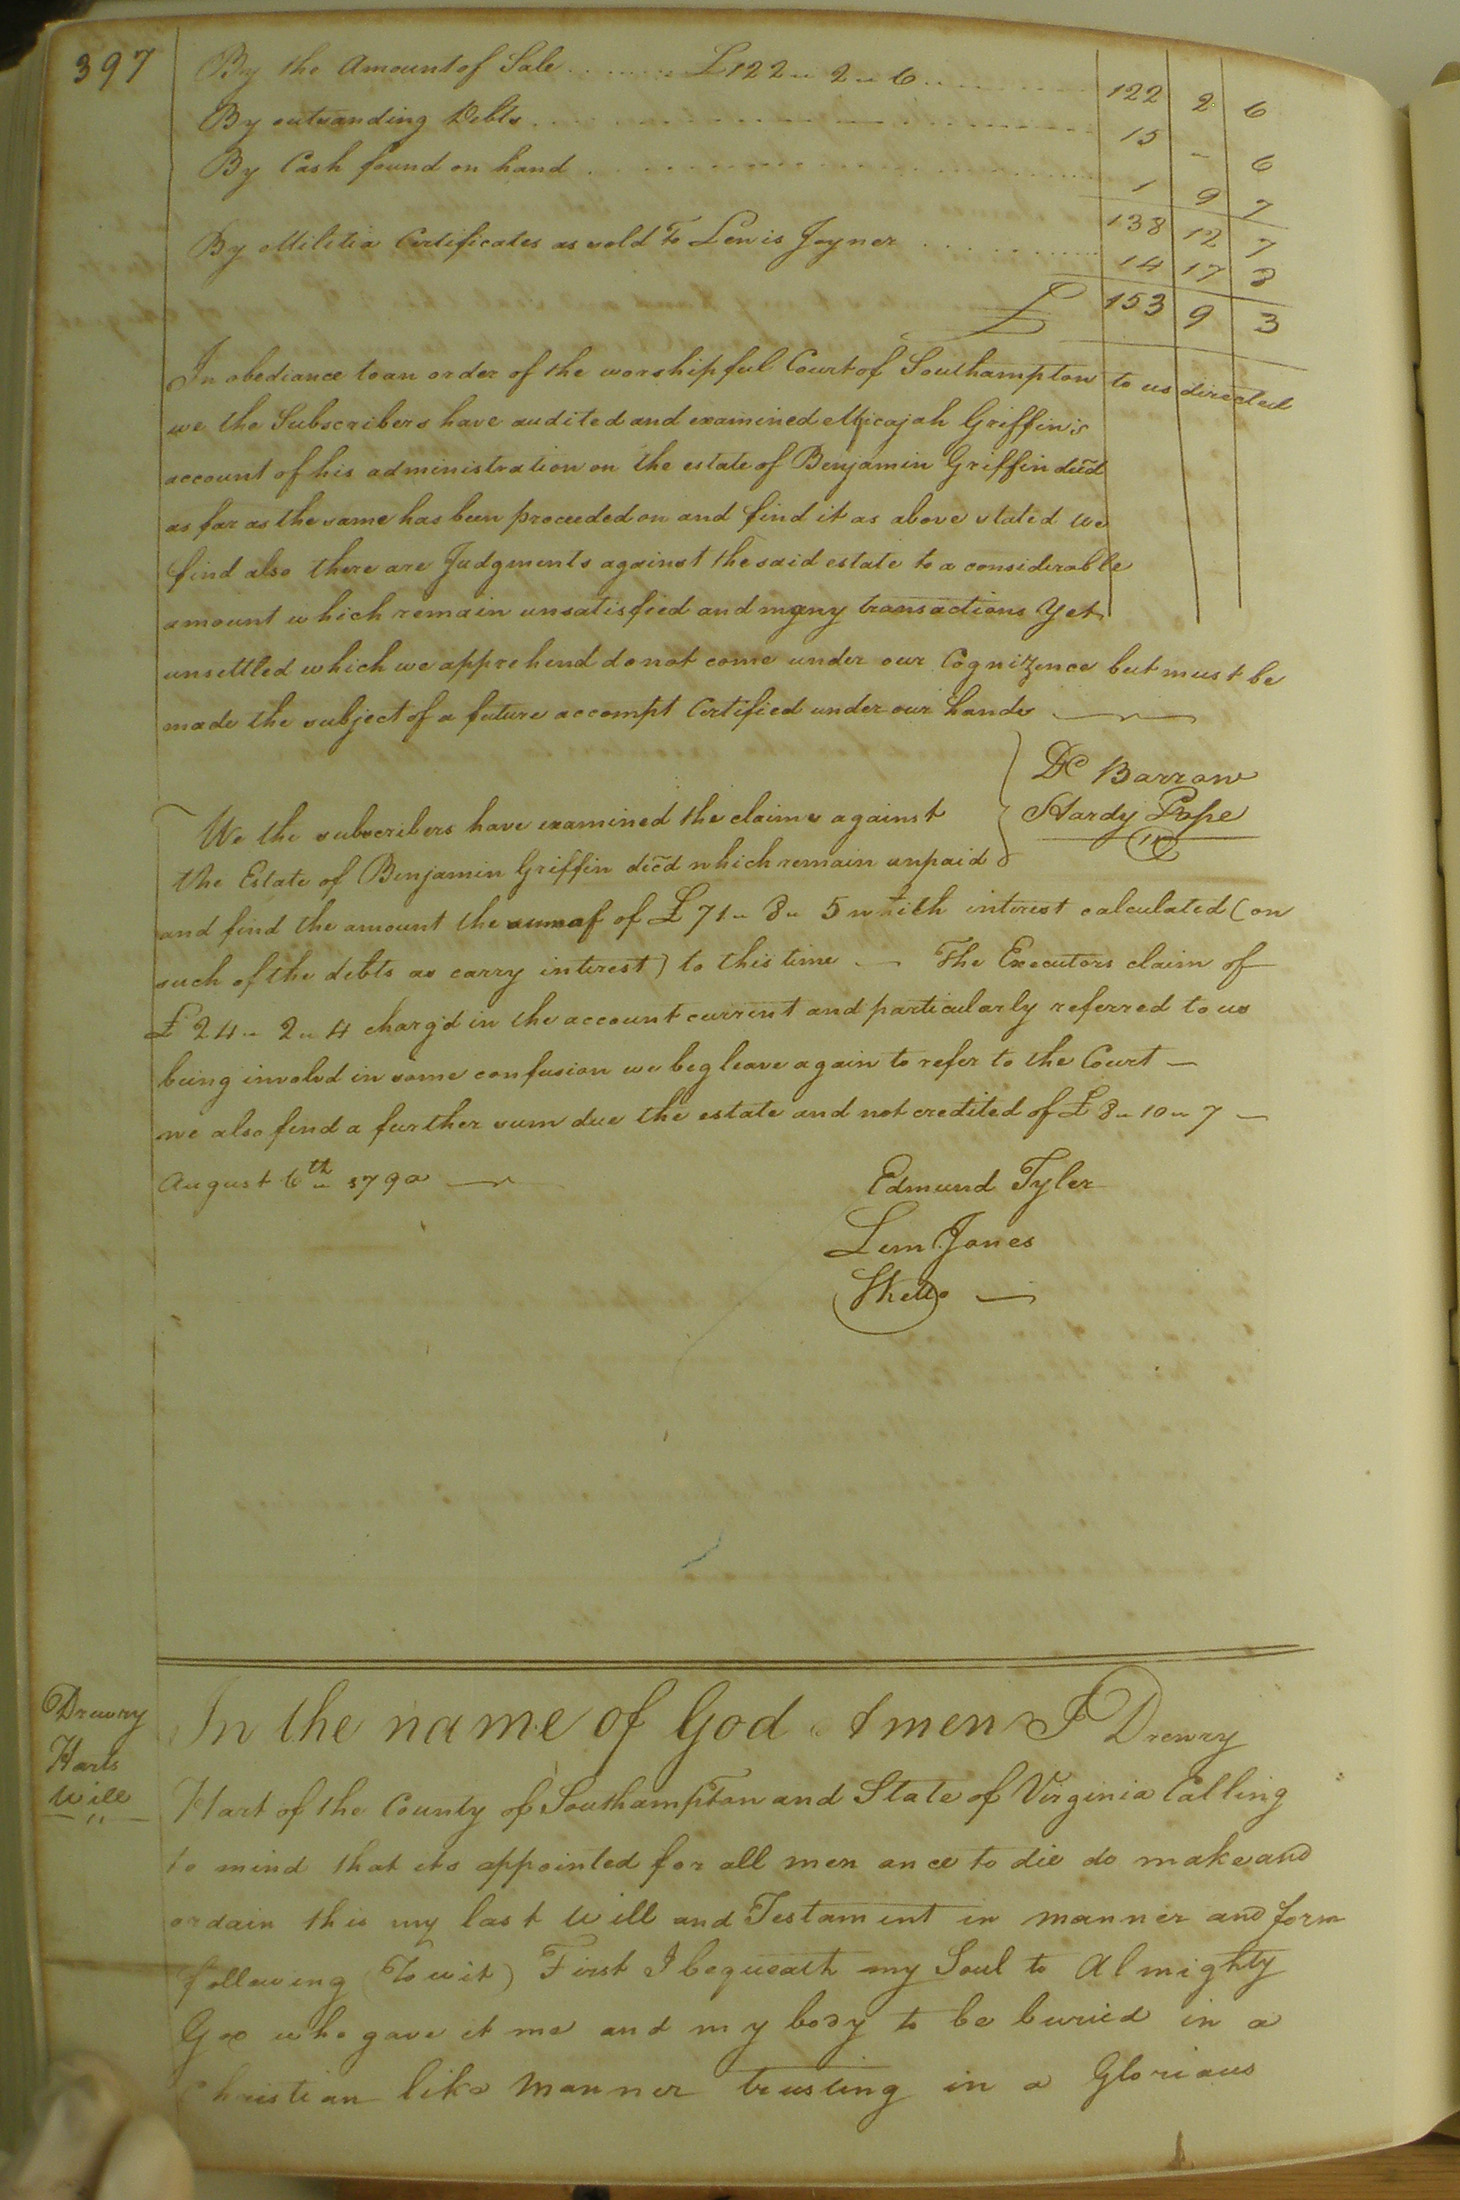 397
By the Amount of Sale . . . . . . . £122 " 2 " 6 . . . . . . . . 122 2 6
By outstanding Debts . . . . . . . . . . . . . . . . 15 - 6
By Cash found on hand . . . . . . . . . . . . . . . 1 9 7
138 12 7
By Militia Certificates as sold To Lewis Joyner . . . . . . . . . 14 17 8
£ 153 9 3
In obediance to an order of the worshipful Court of Southampton to us directed
we the Subscribers have audited and examined Micajah Griffin's
account of his administration on the estate of Benjamin Griffin decd
as far as the same has been proceeded on and find it as above stated we
find also there are Judgments against the said estate to a considerable
amount which remain unsatisfied and many transactions Yet
unsettled which we apprehend do not come under our Cognizence but must be
made the subject of a future accompt Certified under our hands
Barrow
Hardy Pope
We the subscribers have examined the claims against
the Estate of Benjamin Griffin decd which remain unpaid
and find the amount the sum of of £ 71 " 8 " 5 with interest calculated (on
such of the debts as carry interest) to this time — The Executors claim of
£ 24 " 2 " 4 charg'd in the account current and particularly referred to us
being involvd in some confusion we beg leave again to refer to the Court —
we also find a further sum due the estate and not credited of £ 8 " 10 " 7 —
August 6th 1790 —
Edmund Tyler
Lem Jones
Drewry
Harts
Will
In the name of God Amen I Drewry
Hart of the County of Southampton and State of Virginia Calling
to mind that its appointed for all men once to die do make and
ordain this my last Will and Testament in manner and form
following (To wit) First I bequeath my Soul to Almighty
God who gave it me and my body to be buried in a
Christian like Manner trusting in a Glorious